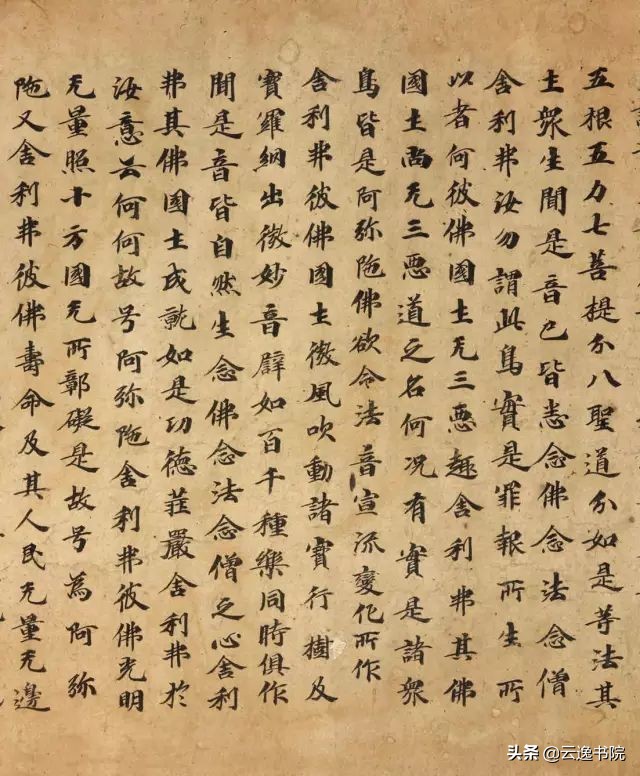 五根五力七菩提分八聖道分如是等法其
土衆生聞是音已皆悉念佛念法念僧
舍利弗汝勿謂此鳥實是罪報所生所
以者何彼佛國土无三惡趣舍利弗其佛
國土尚无三惡道之名何况有實是諸衆
鳥皆是阿弥陁佛欲令法音宣流變化所作
舍利弗彼佛國土微風吹動諸寳行樹及
寳羅網出微妙音辟如百千種樂同時俱作
聞是音皆自然生念佛念法念僧之心舍利
弗其佛國土成就如是功德莊嚴舍利弗於
汝意云何何故号阿弥陁舍利弗彼佛光明
无量照十方國无所鄣礙是故号為阿弥
陁又舍利弗彼佛壽命及其人民无量无邊
头条@云逸书院